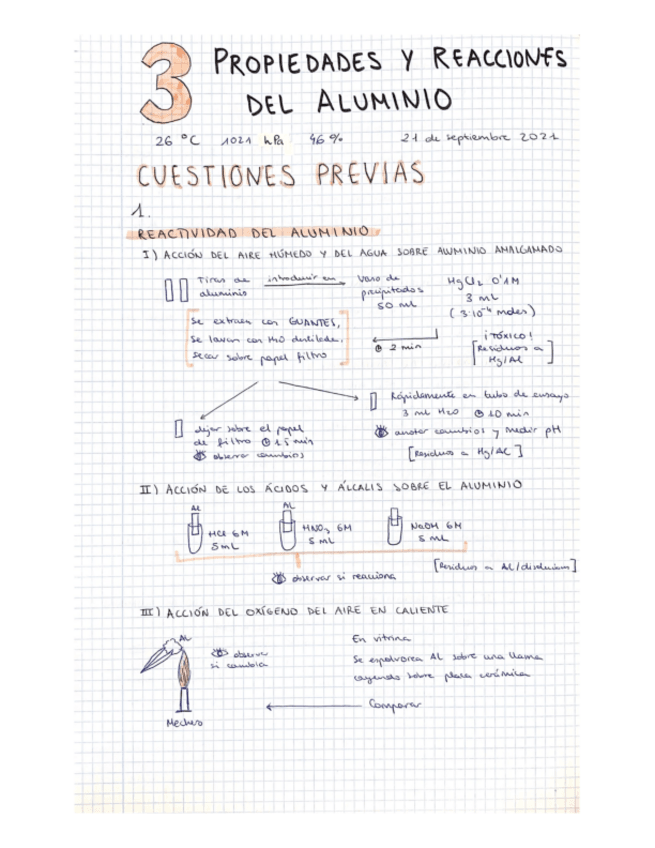 3 PROPIEDADES Y REACCIONES
DEL ALUMINIO
26 °C 1021 hPa 46 % 21 de septiembre 2021
CUESTIONES PREVIAS
1.
REACTIVIDAD DEL ALUMINIO
I) ACCIÓN DEL AIRE HÚMEDO Y DEL AGUA SOBRE ALUMINIO AMALGAMADO
Tiras de aluminio
introducir en
Vaso de precipitados
50 mL
HgCl2 0'1M
3 mL
(3·10⁻⁴ moles)
¡TÓXICO!
[Residuos a
Hg/Al]
2 min
Se extraen con GUANTES,
se lavan con H2O destilada,
secar sobre papel filtro
dejar sobre el papel
de filtro 15 min
observar cambios
Rápidamente en tubo de ensayo
3 mL H2O 10 min
anotar cambios y medir pH
[Residuos a Hg/Al]
II) ACCIÓN DE LOS ÁCIDOS Y ÁLCALIS SOBRE EL ALUMINIO
Al
HCl 6M
5 mL
Al
HNO3 6M
5 mL
NaOH 6M
5 mL
observar si reacciona
[Residuos a Al/disolución]
III) ACCIÓN DEL OXÍGENO DEL AIRE EN CALIENTE
Al
observar
si cambia
Mechero
En vitrina
Se espolvorea Al sobre una llama
cayendo sobre placa cerámica
Comparar